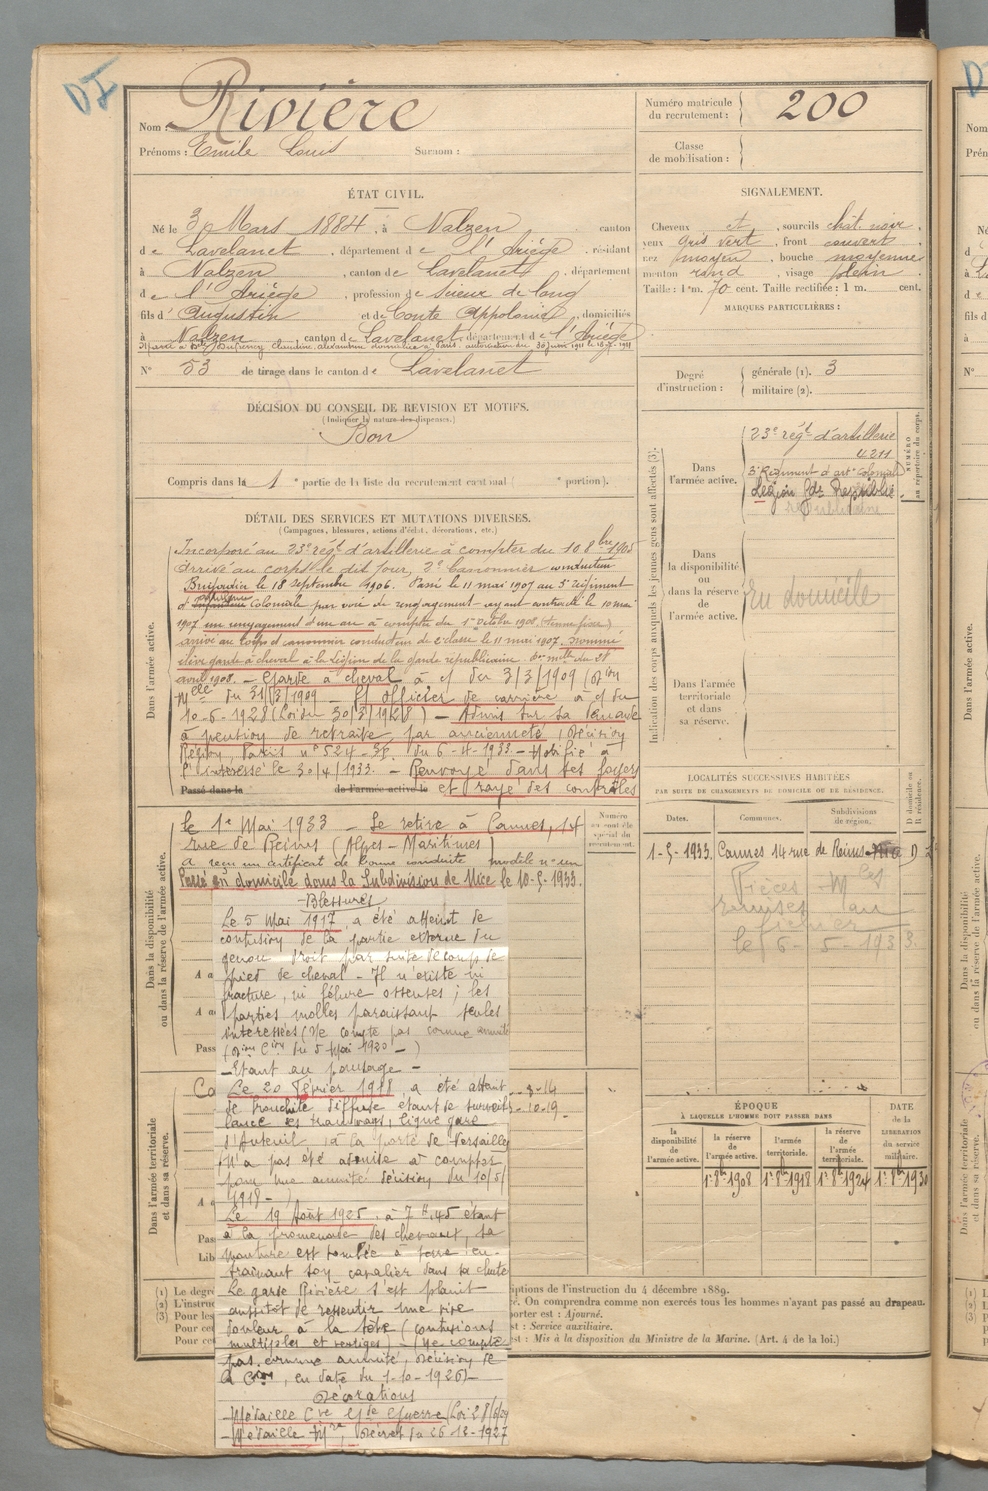 DI
Nom : Rivière
Prénoms : Emile Louis Surnom :
Numéro matricule du recrutement : 200
Classe de mobilisation :
ÉTAT CIVIL.
Né le 3 Mars 1884, à Nalzen canton
de Lavelanet, département de l'Ariège, résidant
à Nalzen, canton de Lavelanet, département
de l'Ariège, profession de scieur de long
fils d'Augustin et de Conte Appolonie, domiciliés
à Nalzen, canton de Lavelanet, département de l'Ariège
N° 53 de tirage dans le canton de Lavelanet
SIGNALEMENT.
Cheveux et, sourcils chât. noir,
yeux gris vert, front couvert
nez moyen, bouche moyenne
menton rond, visage plein
Taille : 1 m. 70 cent. Taille rectifiée : 1 m. cent.
MARQUES PARTICULIÈRES :
Degré d'instruction :
générale (1). 3
militaire (2).
DÉCISION DU CONSEIL DE REVISION ET MOTIFS.
(Indiquer la nature des dispenses.)
Bon
Compris dans la 1e partie de la liste du recrutement cantonal ( e portion).
DÉTAIL DES SERVICES ET MUTATIONS DIVERSES.
(Campagnes, blessures, actions d'éclat, décorations, etc.)
Dans l'armée active.
Incorporé au 23e régt d'artillerie à compter du 10 8bre 1905
Arrivé au corps le dit jour, 2e canonnier conducteur
Brigadier le 18 septembre 1906. Passé le 11 mai 1907 au 3e Régiment
d'artillerie coloniale par voie de rengagement ayant contracté le 10 mai
1907 un rengagement d'un an à compter du 1er octobre 1908
arrivé au Corps et canonnier conducteur de 2e classe le 11 mai 1907. Nommé
élève garde à cheval à la Légion de la garde républicaine
avril 1908. — Garde à cheval à c/ du 3/3/1909
du 31/3/1909 — Ss officier de carrière à c/ du
10-6-1928 (Loi du 30/3/1928) — Admis sur sa demande
à pension de retraite par ancienneté, (Décision
Région Paris n° 524 - du 6-4-1933. — Notifié à
l'intéressé le 30/4/1933. — Renvoyé dans ses foyers
Passé dans la de l'armée active le et rayé des contrôles
le 1er Mai 1933 — Se retire à Cannes, 14
rue de Reims (Alpes-Maritimes)
a reçu un certificat de bonne conduite modèle n° un
Passé en domicile dans la Subdivision de Nice le 10-5-1933.
Numéro au contrôle spécial du recrutement.
Dans la disponibilité ou dans la réserve de l'armée active.
Dans l'armée territoriale et dans sa réserve.
Blessures
Le 5 Mai 1917, a été atteint de
contusion de la partie externe du
genou droit par suite de coup de
pied de cheval - Il n'existe ni
fracture, ni fêlure osseuses ; les
parties molles paraissant seules
intéressées (Ne compte pas comme annuité
du 5 Mai 1920 —)
— Etant au pansage —
Le 20 Février 1918, a été atteint
de bronchite diffuse étant de surveil-
lance des tramways, ligne gare
d'Auteuil, à la porte de Versailles
(N'a pas été admise à compter
pour une annuité décision du 10/5/
1918 —)
Le 19 Août 1925, à 7 h. 45 étant
à la promenade des chevaux, sa
monture est tombée à terre en-
traînant son cavalier dans sa chute
Le garde Rivière s'est plaint
aussitôt de ressentir une vive
douleur à la tête (contusions
multiples et vertiges) — (Ne compte
pas comme annuité, décision de
en date du 1-10-1926) —
Décorations
— Médaille Cve Gde Guerre
— Médaille Mre, Décret du 26-12-1927
Indication des corps auxquels les jeunes gens sont affectés (3).
NUMÉRO au répertoire du corps.
Dans l'armée active.
23e régt d'artillerie
4211
3e Régiment d'arte Coloniale
Légion Gde Républicaine
Dans la disponibilité ou dans la réserve de l'armée active.
En domicile
Dans l'armée territoriale et dans sa réserve.
LOCALITÉS SUCCESSIVES HABITÉES
PAR SUITE DE CHANGEMENTS DE DOMICILE OU DE RÉSIDENCE.
D domicile ou R résidence.
Dates. Communes. Subdivisions de région.
1-5-1933. Cannes 14 rue de Reims Nice D
Pièces Mles
remises au
fichier
le 6-5-1933.
ÉPOQUE
À LAQUELLE L'HOMME DOIT PASSER DANS
DATE de la LIBÉRATION du service militaire.
la disponibilité de l'armée active.
la réserve de l'armée active.
l'armée territoriale.
la réserve de l'armée territoriale.
1er 8bre 1908 1er 8bre 1918 1er 8bre 1924 1er 8bre 1930
(1) Le degré
(2) L'instruc
(3) Pour les
Pour ce
Pour ce
iptions de l'instruction du 4 décembre 1889.
é. On comprendra comme non exercés tous les hommes n'ayant pas passé au drapeau.
porter est : Ajourné.
st : Service auxiliaire.
est : Mis à la disposition du Ministre de la Marine. (Art. 4 de la loi.)